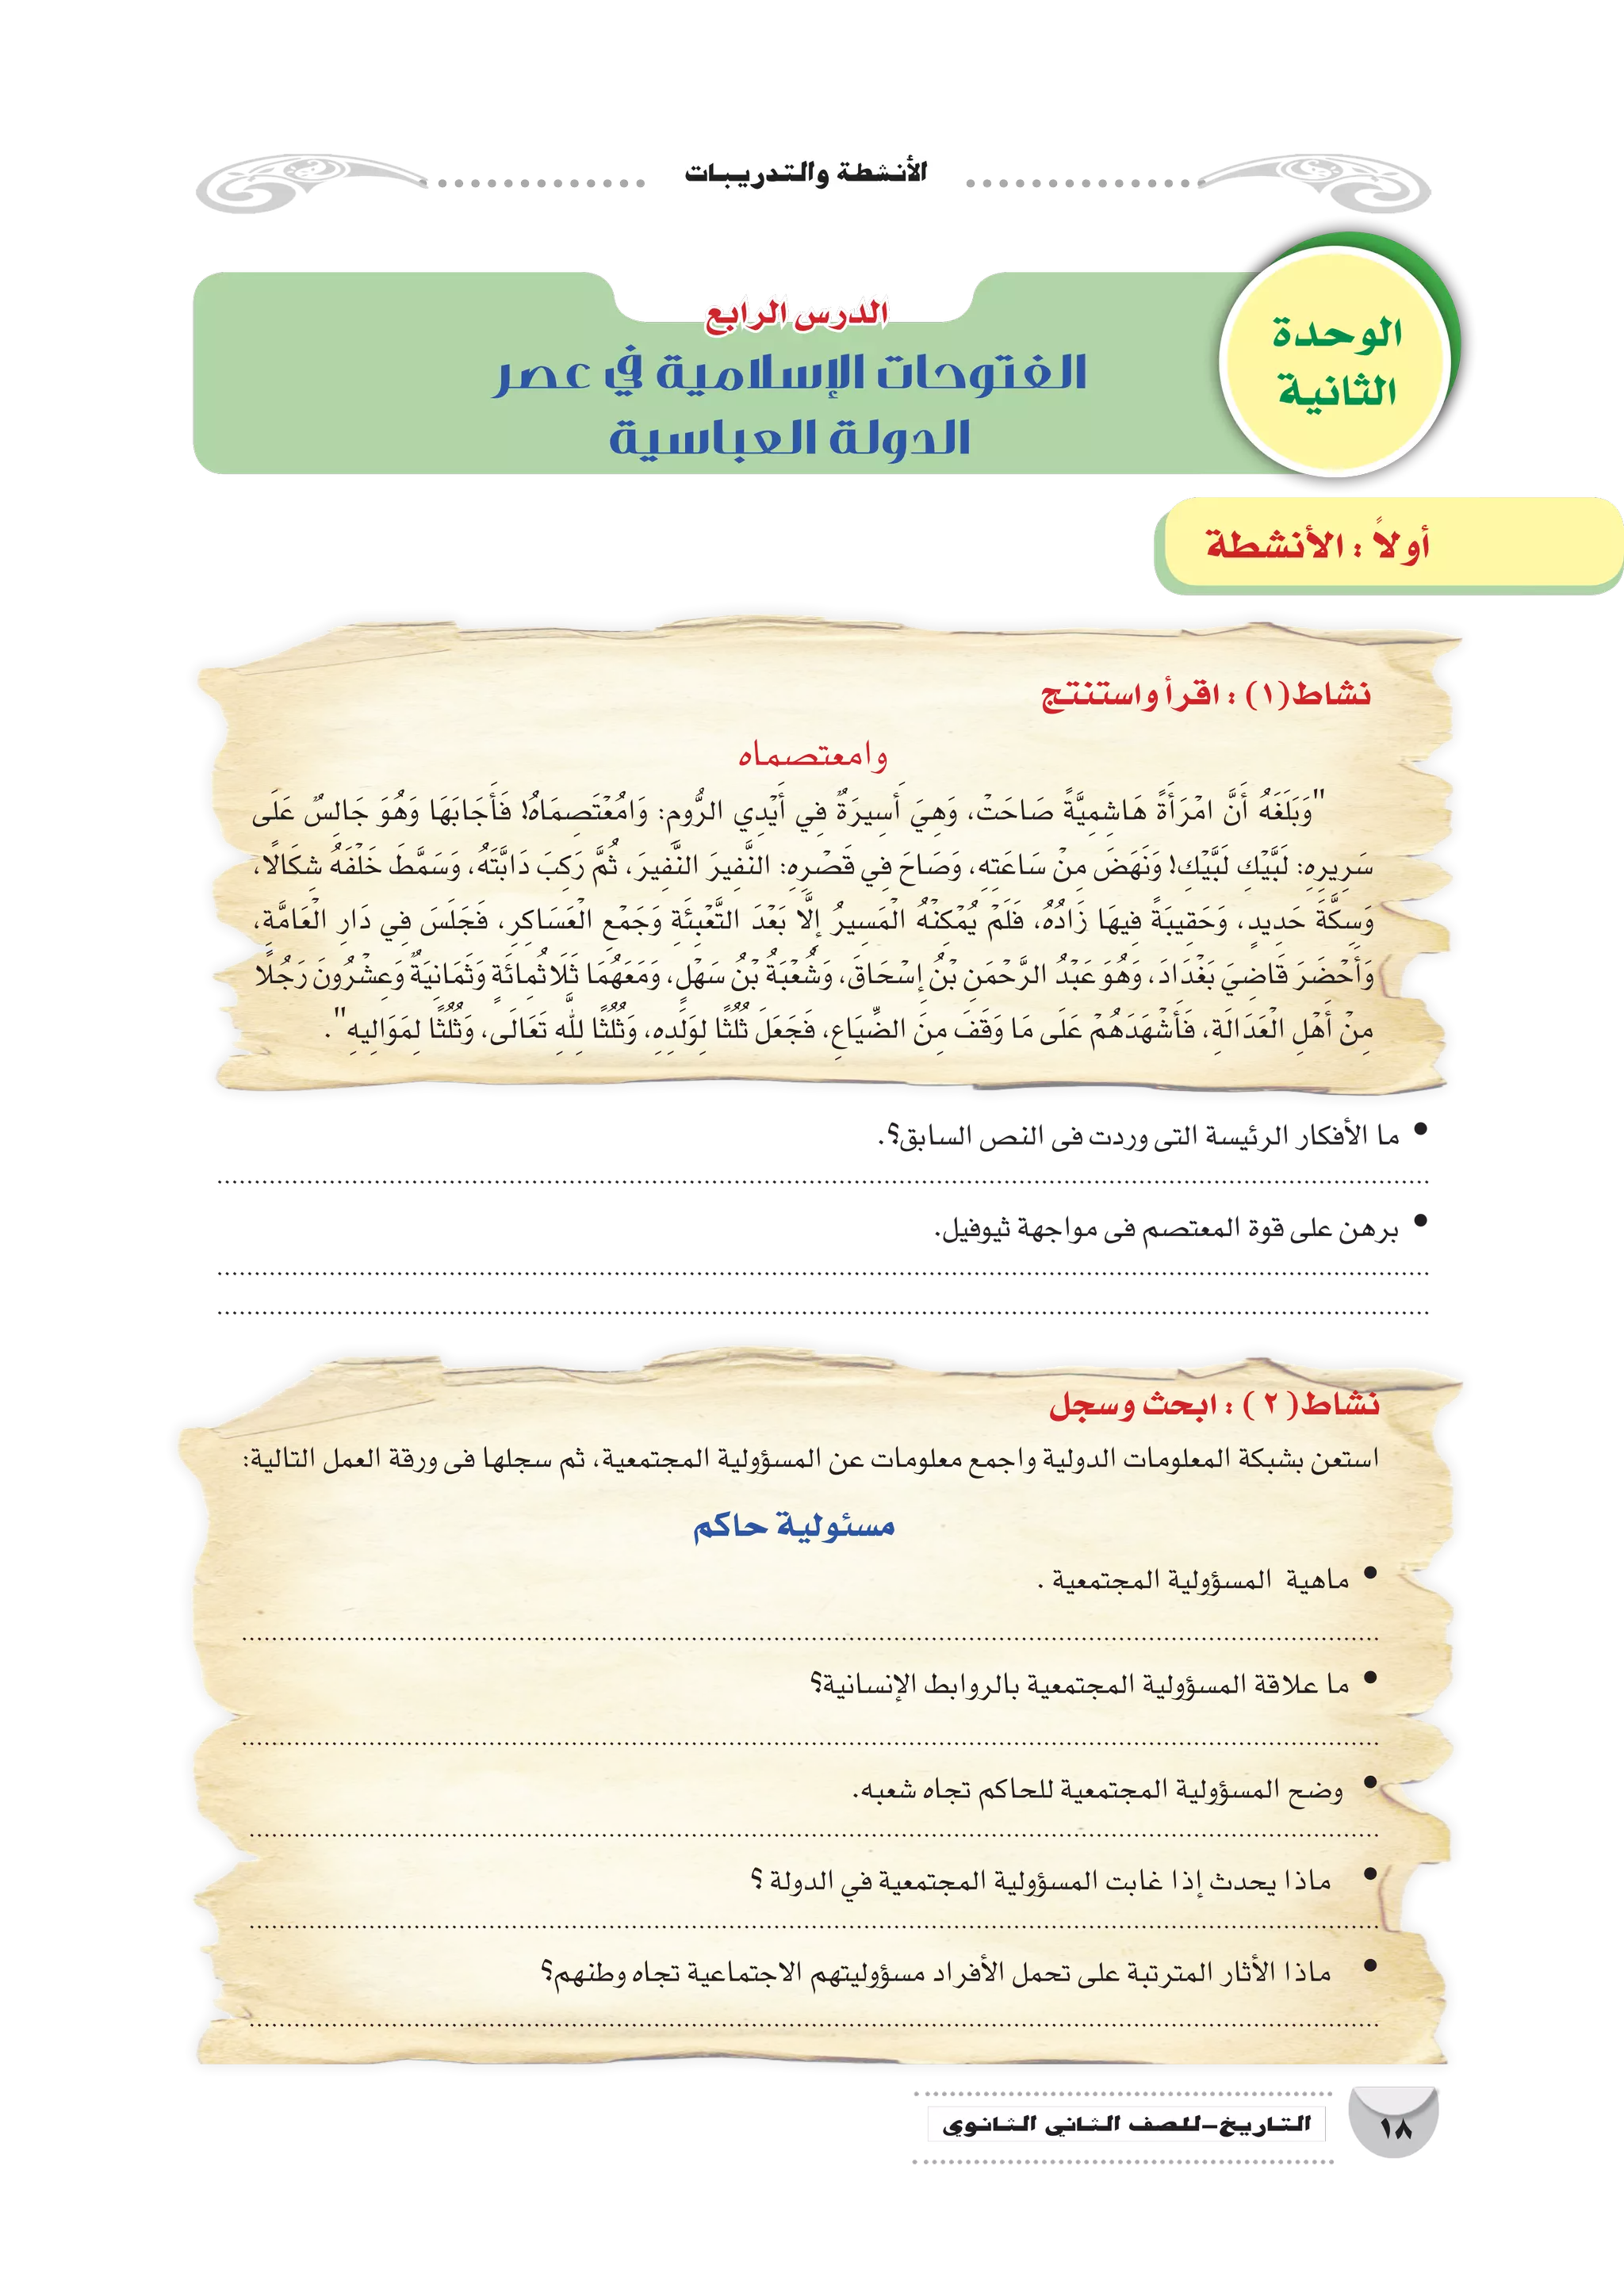 الأنشطة والتدريبات
الوحدة
الثانية
الدرس الرابع
الفتوحات الإسلامية في عصر
الدولة العباسية
أولاً : الأنشطة
نشاط(١) : اقرأ واستنتج
وامعتصماه
"وَبَلَغَهُ أَنَّ امْرَأَةً هَاشِمِيَّةً صَاحَتْ، وَهِيَ أَسِيرَةٌ فِي أَيْدِي الرُّومِ: وَامُعْتَصِمَاهُ! فَأَجَابَهَا وَهُوَ جَالِسٌ عَلَى
سَرِيرِهِ: لَبَّيْكِ لَبَّيْكِ! وَنَهَضَ مِنْ سَاعَتِهِ، وَصَاحَ فِي قَصْرِهِ: النَّفِيرَ النَّفِيرَ، ثُمَّ رَكِبَ دَابَّتَهُ، وَسَمَّطَ خَلْفَهُ شِكَالًا،
وَسِكَّةَ حَدِيدٍ، وَحَقِيبَةً فِيهَا زَادُهُ، فَلَمْ يُمْكِنْهُ الْمَسِيرُ إِلَّا بَعْدَ التَّعْبِئَةِ وَجَمْعِ الْعَسَاكِرِ، فَجَلَسَ فِي دَارِ الْعَامَّةِ،
وَأَحْضَرَ قَاضِيَ بَغْدَادَ، وَهُوَ عَبْدُ الرَّحْمَنِ بْنُ إِسْحَاقَ، وَشُعْبَةُ بْنُ سَهْلٍ، وَمَعَهُمَا ثَلَاثُمِائَةٍ وَثَمَانِيَةٌ وَعِشْرُونَ رَجُلًا
مِنْ أَهْلِ الْعَدَالَةِ، فَأَشْهَدَهُمْ عَلَى مَا وَقَفَ مِنَ الضِّيَاعِ، فَجَعَلَ ثُلُثًا لِوَلَدِهِ، وَثُلُثًا لِلَّهِ تَعَالَى، وَثُلُثًا لِمَوَالِيهِ".
• ما الأفكار الرئيسة التى وردت فى النص السابق؟.
• برهن على قوة المعتصم فى مواجهة ثيوفيل.
نشاط( ٢ ) : ابحث وسجل
استعن بشبكة المعلومات الدولية واجمع معلومات عن المسؤولية المجتمعية، ثم سجلها فى ورقة العمل التالية:
مسئولية حاكم
• ماهية المسؤولية المجتمعية .
• ما علاقة المسؤولية المجتمعية بالروابط الإنسانية؟
• وضح المسؤولية المجتمعية للحاكم تجاه شعبه.
• ماذا يحدث إذا غابت المسؤولية المجتمعية في الدولة ؟
• ماذا الأثار المترتبة على تحمل الأفراد مسؤوليتهم الاجتماعية تجاه وطنهم؟
١٨ التاريخ-للصف الثاني الثانوي